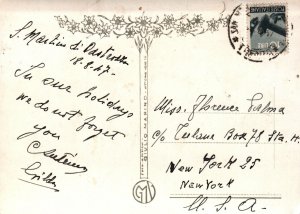 S. Martino di Castrozza
18.8.47.
In our holidays
we do not forget
you
Gilda
GIULIO MARINO
GM
Miss. Florence Palma
c/o Tulane Box 78 Sta.
New York 25
New York
U. S. A.